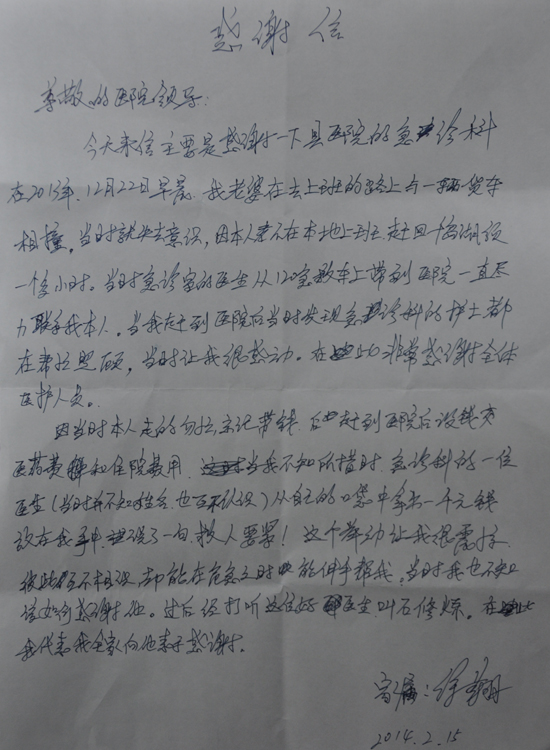 感谢信
尊敬的医院领导:
今天来信主要是感谢一下县医院的急诊科
在2013年.12月22日早晨.我老婆在去上班的路上与一辆货车
相撞,当时就失去意识,因本人不在本地上班赶回干海湖须
一个多小时。当时急诊室的医生从120急救车上带到医院一直尽
力联系我本人。当我赶到医院后当时发现急诊科的护士都
在帮忙照顾,当时让我很感动。在此非常感谢全体
医护人员。
因当时本人走的匆忙,忘记带钱.赶到医院后没钱交
医药费和住院费用.当我不知所措时.急诊科的一位
医生(当时我不知姓名.也不认识)从自己的口袋中拿出一千元钱
放在我手中.说了一句.救人要紧!这个举动让我很震撼.
彼此互不相识.却能在危急之时伸手帮我,当时我也不知
该如何感谢他。过后经打听这位好医生叫石修炼。在此
我代表我全家向他表示感谢。
家属:
2014.2.15